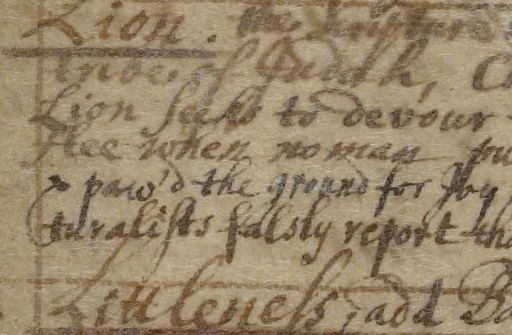 Lion. the Scripture
tribe of Judah, C
Lion seeks to devour
flee when no man pu
& paw'd the ground for Joy
turalists falsly report tha
Littleness, add Ba